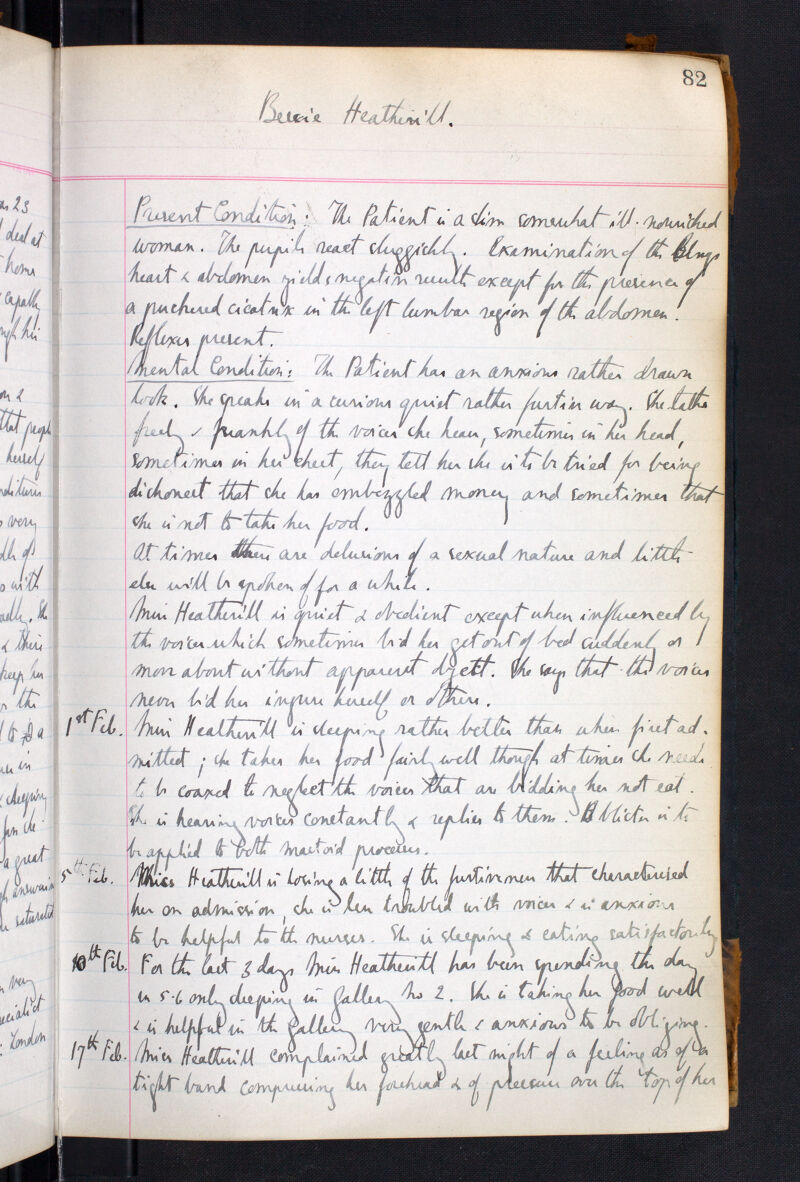 82
Bessie Heatherill.
Present Condition: The Patient is a slim somewhat ill-nourished
woman. The pupils react sluggishly. Examination of the lungs
heart & abdomen yields negative results except for the presence of
a puckered cicatrix in the left lumbar region of the abdomen.
Reflexes present.
Mental Condition: The Patient has an anxious rather drawn
look. She speaks in a curious quiet rather furtive way. She talks
freely & frankly of the voices she hears, sometimes in her head,
sometimes in her chest, they tell her she is to be tried for being
dishonest that she has embezzled money and sometimes that
she is not to take her food.
At times there are delusions of a sexual nature and little
else will be spoken of for a while.
Miss Heatherill is quiet & obedient except when influenced by
the voices which sometimes bid her get out of bed suddenly or
move about without apparent object. She says that the voices
never bid her injure herself or others.
1st Feb. Miss Heatherill is sleeping rather better than when first ad-
mitted; she takes her food fairly well though at times she needs
to be coaxed to neglect the voices that are bidding her not eat.
She is hearing voices constantly & replies to them. A blister is to
be applied to both mastoid processes.
5th Feb. Miss Heatherill is losing a little of the furtiveness that characterised
her on admission, she is less troubled with voices & is anxious
to be helpful to the nurses. She is sleeping & eating satisfactorily
10th Feb. For the last 3 days Miss Heatherill has been spending the day
in 5-6 only sleeping in Gallery No 2. She is taking her food well
& is helpful in the gallery very gentle & anxious to be obliging.
17th Feb. Miss Heatherill complained greatly last night of a feeling as of a
tight band compressing her forehead & of pressure over the top of her